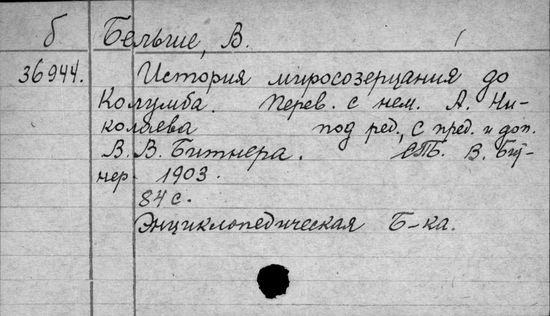 б Бельше, В.
36944. История миросозерцания до
Колумба. Перев. с нем. А. Ни-
колаева под ред., с пред. и доп.
В. В. Битнера. СПБ. В. Бит-
нер. 1903.
84 с.
Энциклопедическая Б-ка.